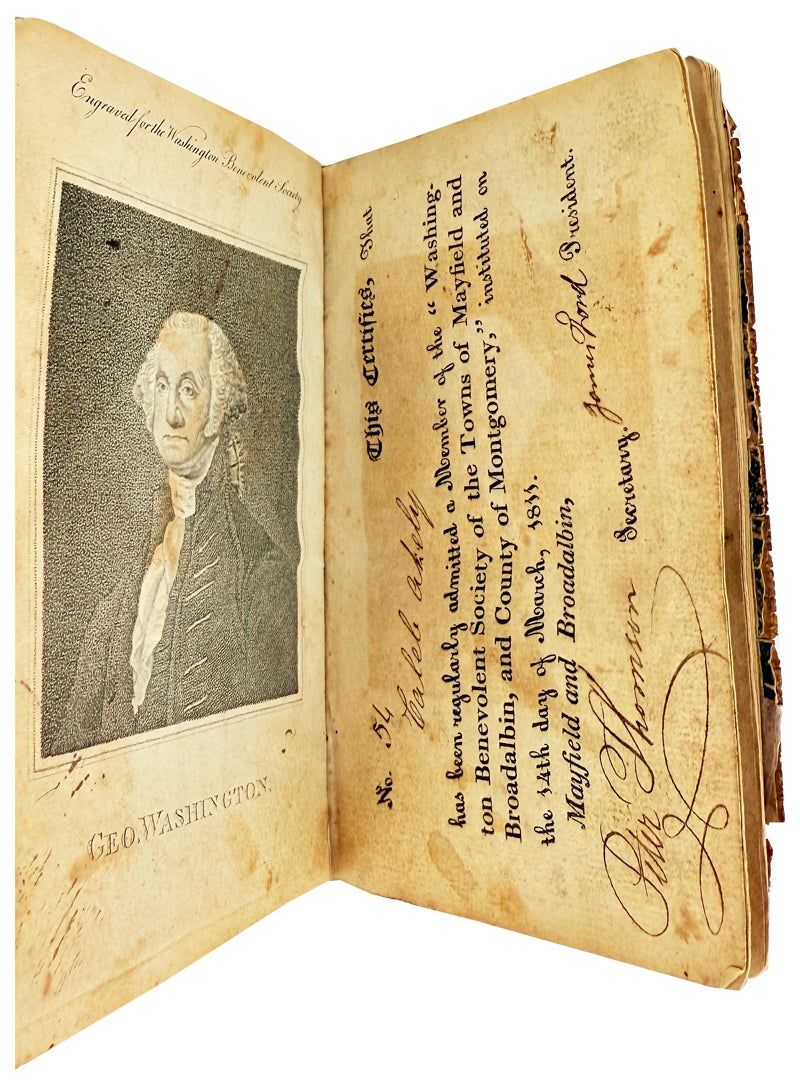 Engraved for the Washington Benevolent Society
GEO. WASHINGTON.
No. 54 This Certifies, That
Caleb Akely
has been regularly admitted a Member of the “ Washing-
ton Benevolent Society of the Towns of Mayfield and
Broadalbin, and County of Montgomery,” instituted on
the 14th day of March, 1811.
Mayfield and Broadalbin,
James Ford President.
Peter Thomson Secretary.